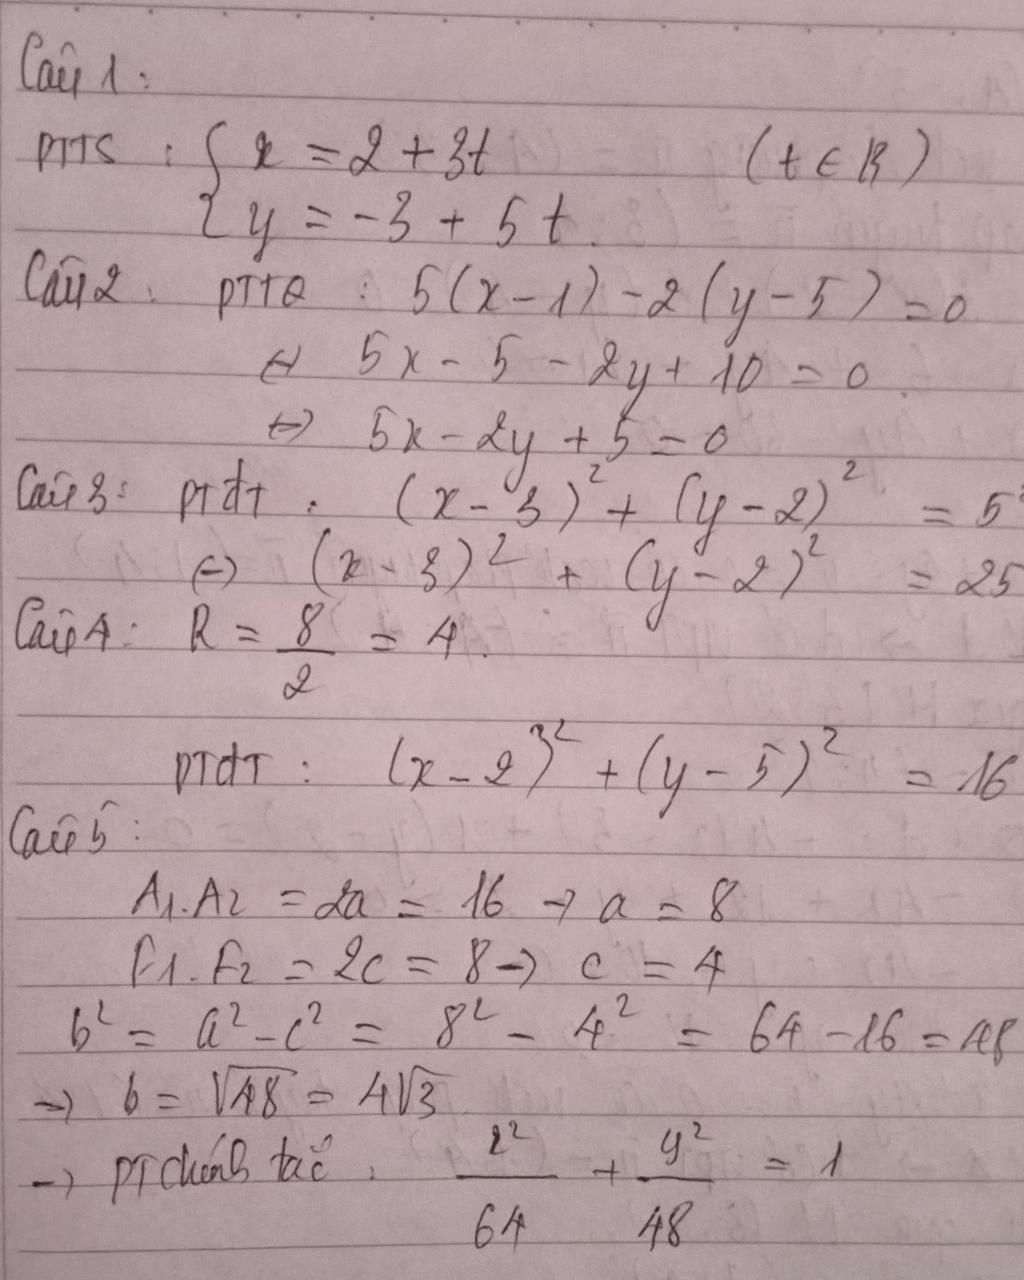 Câu 1:
PTTS : { x = 2 + 3t (t ∈ R)
{ y = -3 + 5t.
Câu 2. PTTQ : 5(x - 1) - 2(y - 5) = 0
⇔ 5x - 5 - 2y + 10 = 0.
⇔ 5x - 2y + 5 = 0
Câu 3: PTđT : (x - 3)² + (y - 2)² = 5²
⇔ (x - 3)² + (y - 2)² = 25
Câu 4: R = 8/2 = 4.
PTđT : (x - 2)² + (y - 5)² = 16
Câu 5:
A1.A2 = 2a = 16 → a = 8
F1.F2 = 2c = 8 → c = 4
b² = a² - c² = 8² - 4² = 64 - 16 = 48
→ b = √48 = 4√3
→ PT chính tắc : x²/64 + y²/48 = 1